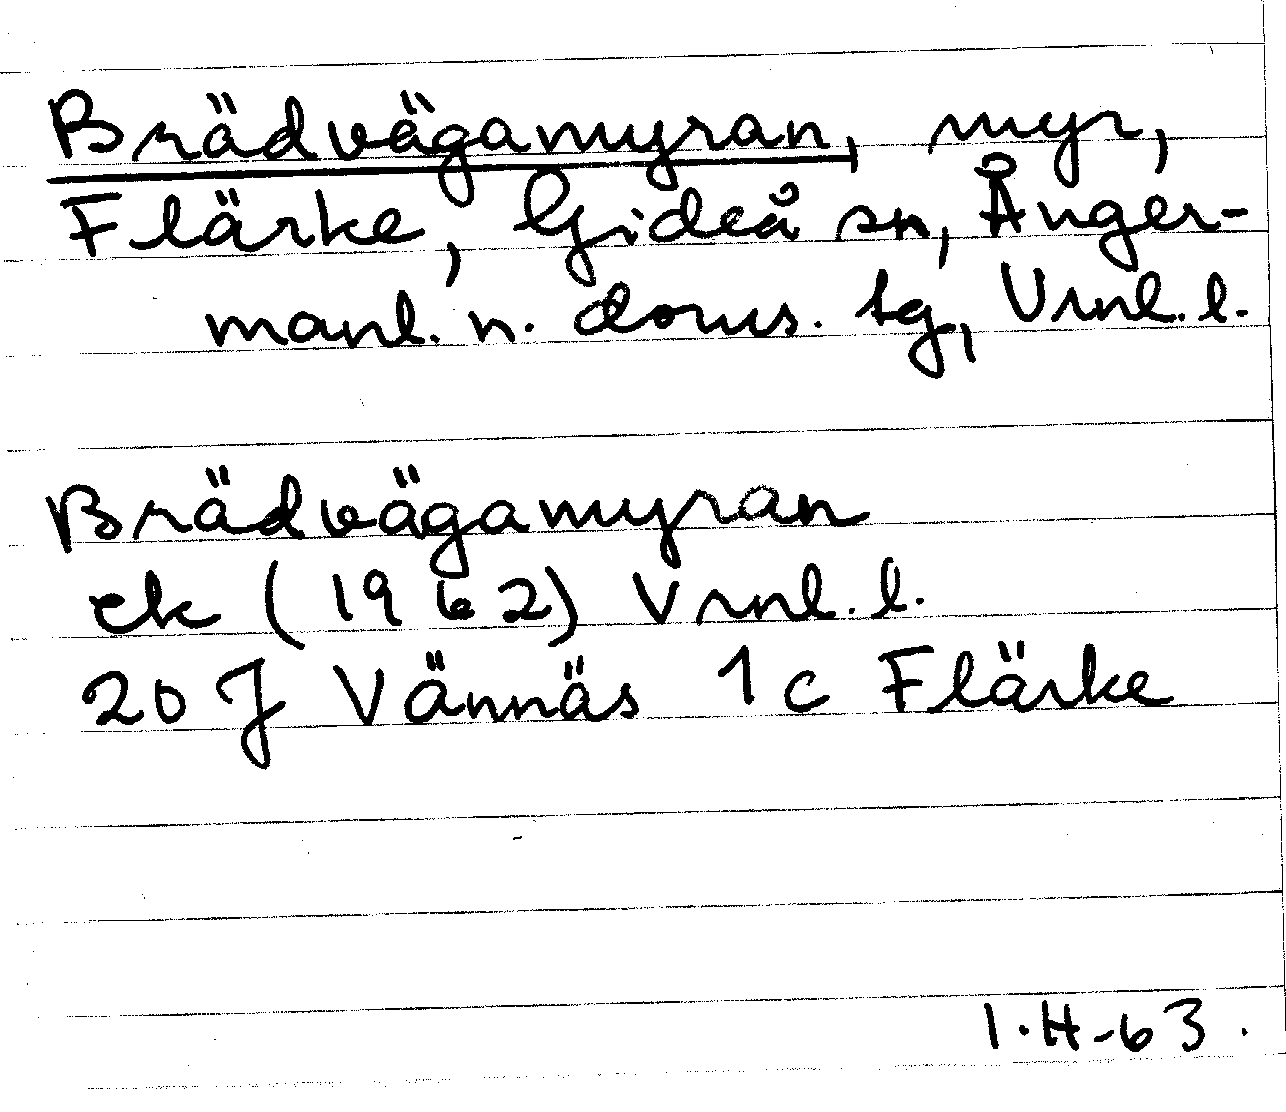 Brädvägamyran, myr,
Flärke, Gideå sn, Ånger-
manl. n. doms. tg, Vrnl. l.
Brädvägamyran
ek (1962) Vrnl. l.
20 J Vännäs 1c Flärke
I.H-63.